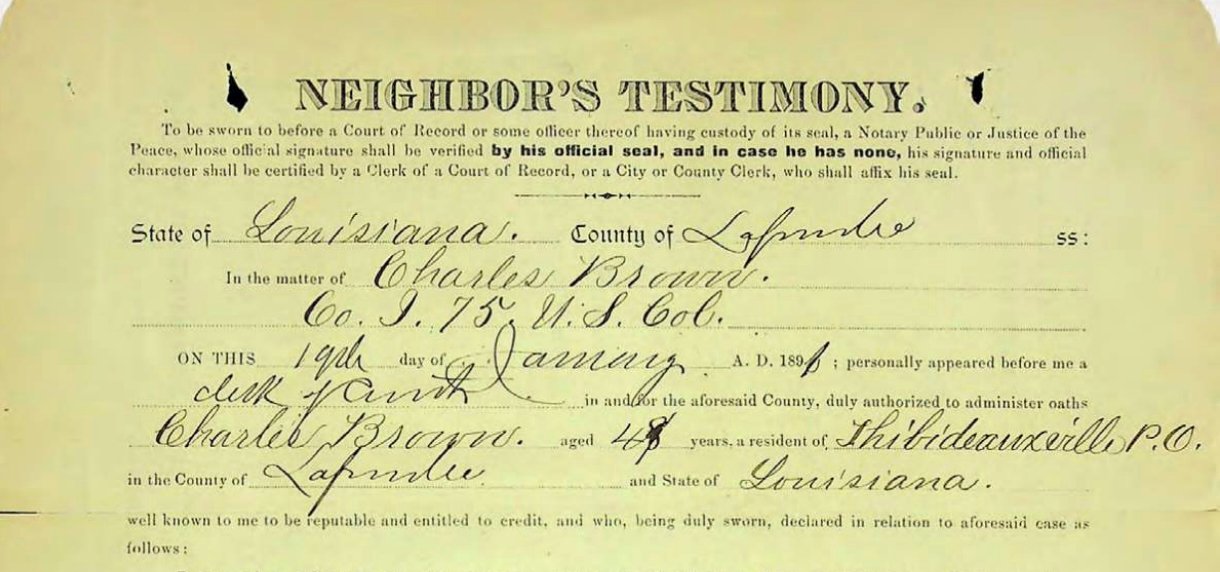 NEIGHBOR'S TESTIMONY.
To be sworn to before a Court of Record or some officer thereof having custody of its seal, a Notary Public or Justice of the
Peace, whose official signature shall be verified by his official seal, and in case he has none, his signature and official
character shall be certified by a Clerk of a Court of Record, or a City or County Clerk, who shall affix his seal.
State of Louisiana. County of ss:
In the matter of Charles Brown.
Co. I. 75. U. S. Col.
ON THIS 19th day of January A. D. 189 ; personally appeared before me a
clerk of Court in and for the aforesaid County, duly authorized to administer oaths
Charles Brown. aged years, a resident of Thibideauxville P.O.
in the County of and State of Louisiana.
well known to me to be reputable and entitled to credit, and who, being duly sworn, declared in relation to aforesaid case as
follows: